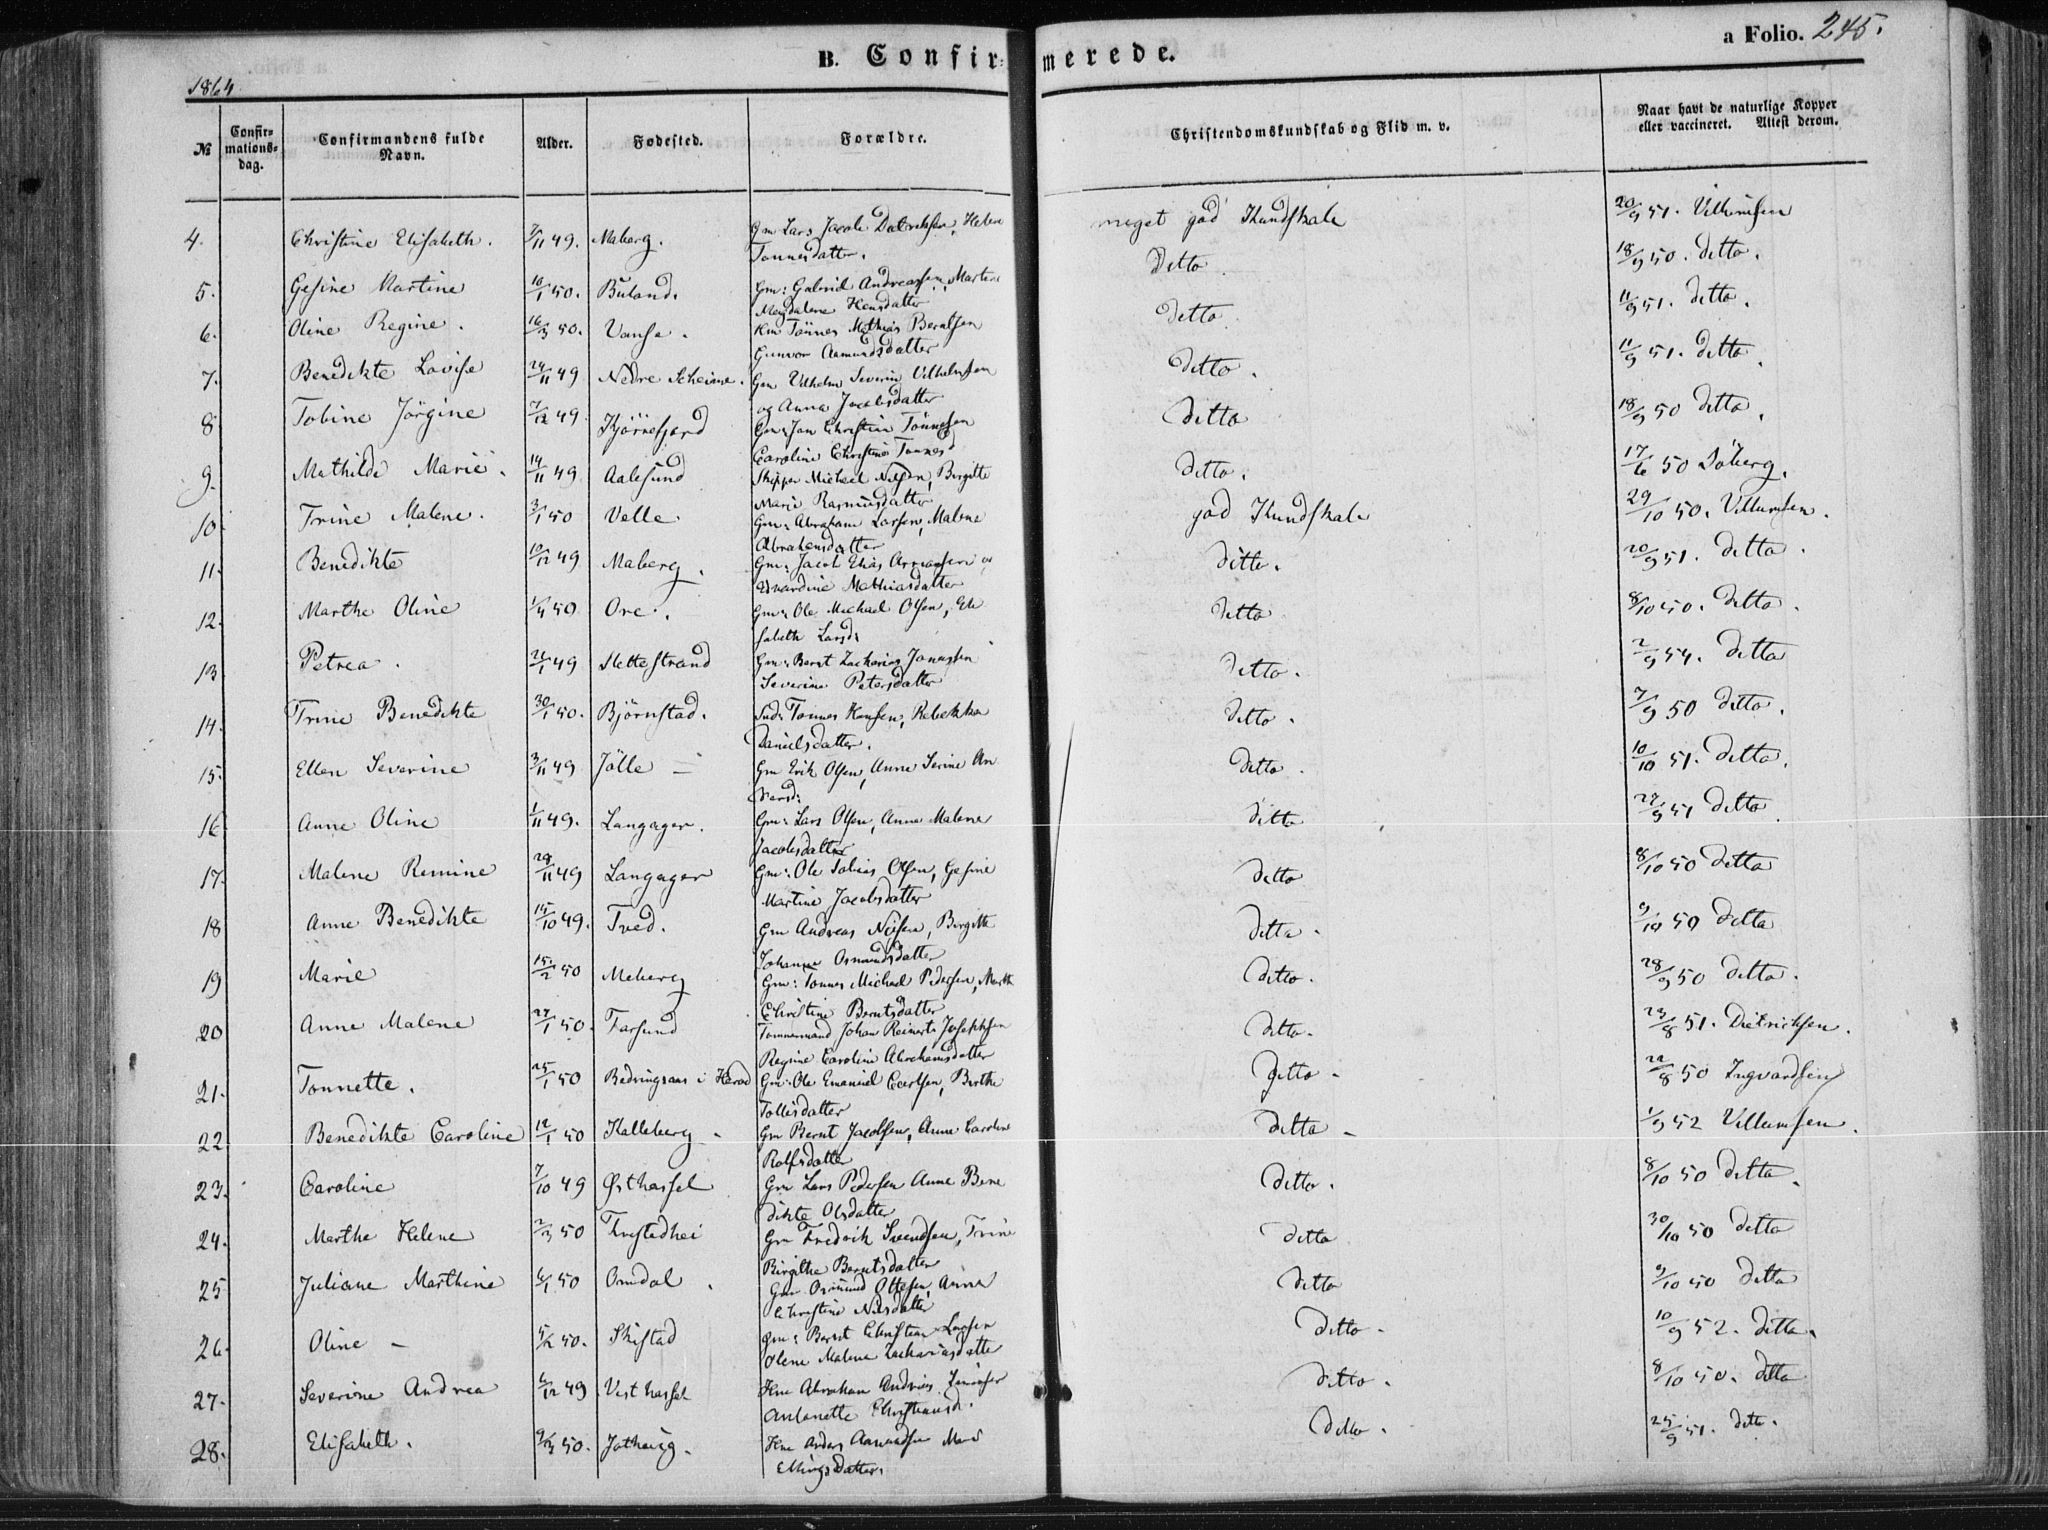 B. Confirmerede.
a Folio. 245.
1864
№
Confirmationsdag.
Confirmandens fulde Navn.
Alder.
Fødested.
Forældre.
Christendomskundskab og Flid m. v.
Naar havt de naturlige Kopper eller vaccineret. Attest derom.
4. Christine Elisabeth. 7/11 49. Maberg. Gm Lars Jacob Helene meget god Kundskab 20/9 51.
Tønnesdatter.
5. Gesine Martine 10/1 50. Buland. Gm: Gabriel Andreassen, Martine Ditto 18/9 50. ditto.
Magdalene
6. Oline Regine. 16/3 50. Vanse. Tønnes Mathias Berntsen ditto 11/9 51. ditto.
Gunvor Aamundsdatter
7. Benedikte Lovise 24/11 49 Nedre Gm Vilhelm Severin Vilhelmsen ditto. 11/9 51. ditto.
og Anna Jacobsdatter
8 Tobine Jørgine 7/12 49. Kjørrefjord Gm: Jan Christian Tønnesen ditto 18/9 50 ditto.
Caroline Christine Tønnesd
9. Mathilde Marie. 14/11 49 Aalesund Skipper Michael Nilsen, Birgitte ditto. 17/6 50 Søberg.
Marie Rasmusdatter
10. Trine Malene. 3/1 50 Velle Gm: Abraham Larsen, Malene god Kundskab 29/10 50. Villumsen.
Abrahamsdatter
11. Benedikte 10/12 49 Maberg. Gm: Jacob Elias og ditto. 20/9 51. ditto.
Edvardine Mathiasdatter
12. Marthe Oline 1/4 50 Ore. Gm: Ole Michael Olsen, Eli ditto 8/10 50. ditto.
sabeth Larsd:
13. Petrea. 21/1 49 Slettestrand Gm: Bernt Zacharias Jonassen ditto. 2/9 54. ditto
Severine Petersdatter
14. Trine Benedikte 30/1 50. Bjørnstad. Tønnes Hansen, Rebekka ditto. 7/9 50 ditto.
Danielsdatter.
15. Ellen Severine 3/11 49 Jølle – Gm Erik Olsen, Anne Serine An ditto. 10/10 51. ditto.
dersd:
16. Anne Oline 1/11 49. Langager. Gm: Lars Olsen, Anne Malene ditto 27/9 51 ditto.
Jacobsdatter
17. Malene Remine 29/11 49 Langager Gm: Ole Tobias Olsen, Gesine ditto 8/10 50 ditto
Martine Jacobsdatter
18 Anne Benedikte 15/10 49. Tved. Gm Andreas Nilsen, Birgitte ditto. 9/10 50 ditto
Johanne Osmundsdatter
19 Marie 15/2 50 Meberg Gm: Tønnes Michael Pedersen, Marth ditto. 28/9 50 ditto.
Christine Berntsdatter
20 Anne Malene 27/1 50. Farsund Tømmermand Johan Reinert Josephsen ditto. 23/8 51. Dietrichsen.
Regine Caroline Abrahamsdatter
21. Tonnette. 25/1 50 i Herad Gm: Ole Emanuel Carlsen, Berthe ditto. 22/8 50 Ingvardsen
Tollisdatter
22. Benedikte Caroline 12/1 50 Kalleberg. Gm Bernt Jacobsen, Anne Caroline ditto – 1/9 52 Villumsen.
Rolfsdatter
23. Caroline 7/10 49 Østhassel Gm Lars Pedersen Anne Bene ditto. 8/10 50 ditto.
dikte Olsdatter
24. Marthe Helene 2/3 50 Gm Fredrik Svendsen, Trine ditto 30/10 50 ditto
Birgithe Berntsdatter
25 Juliane Marthine 6/1 50 Omdal. Gm Osmund Ottesen, Anne ditto 9/10 50 ditto
Christine Nilsdatter
26. Oline – 5/2 50. Skistad Gm: Bernt Christian Larsen ditto. 10/9 52. ditto.
Olene Malene Zachariasdatter
27. Severine Andrea 6/12 49 Vesthassel Abraham Andreas ditto. 8/10 50. ditto
Antonette Christiansd.
28. Elisabeth. 9/3 50. Anders Aanundsen ditto. 25/9 51. ditto.
Ellingsdatter.